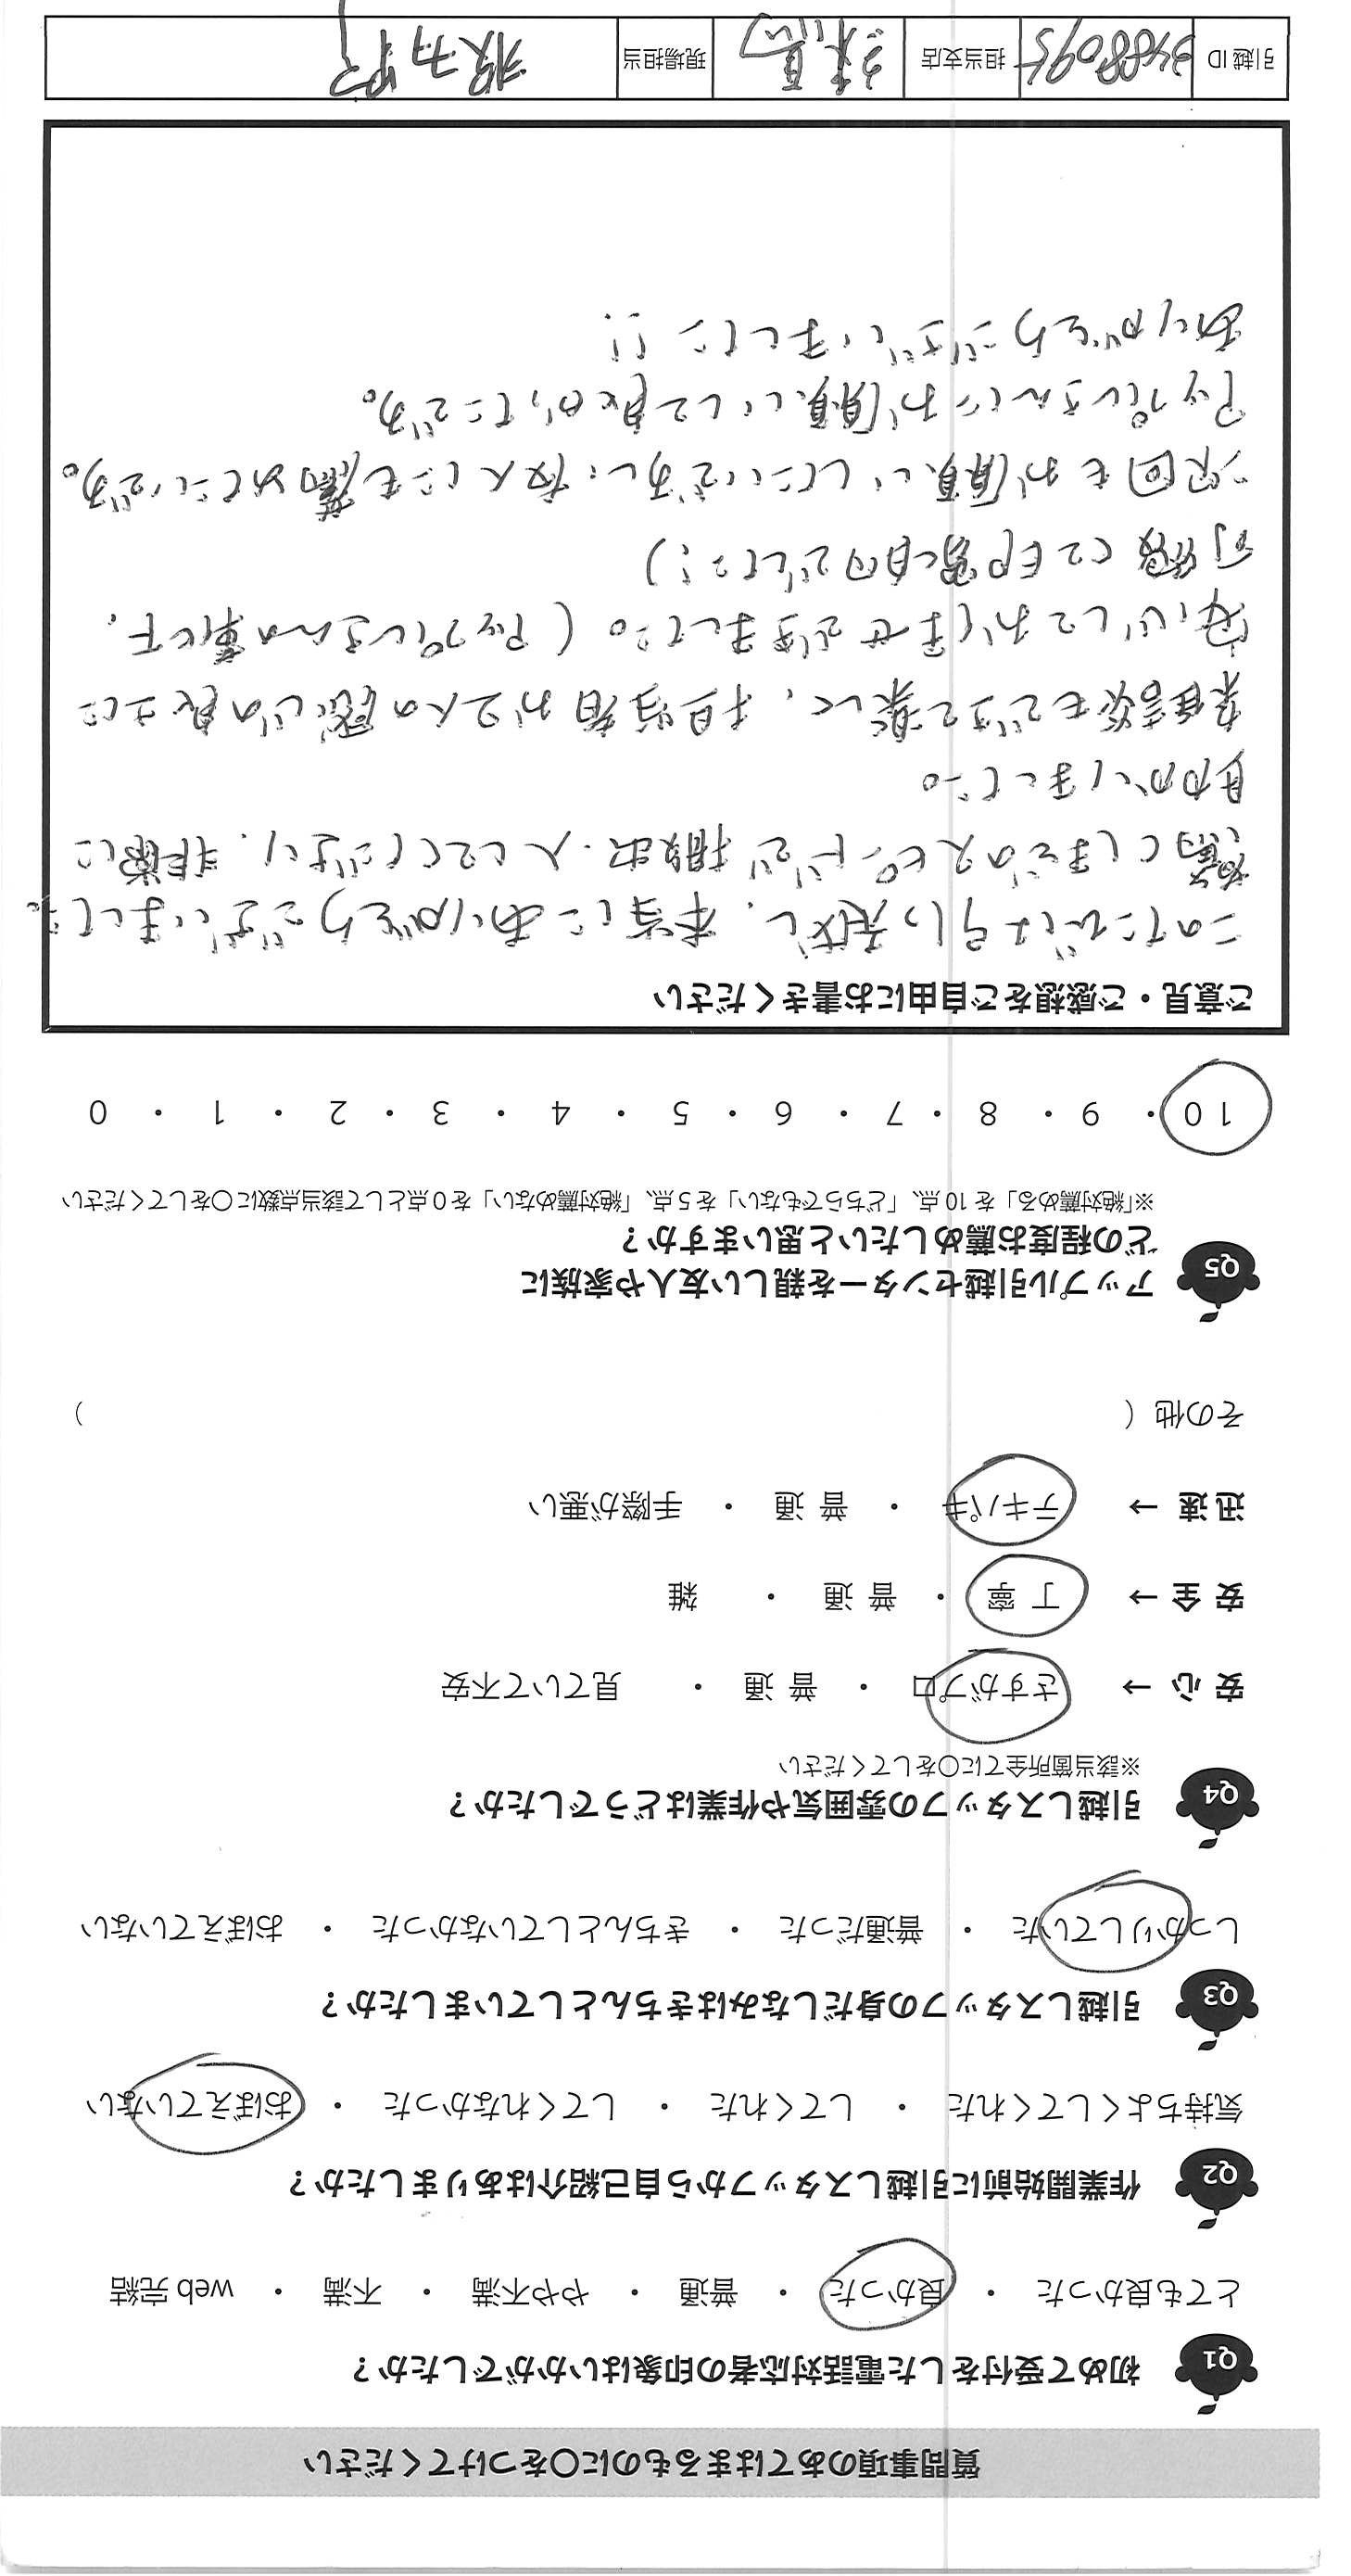 質問事項のあてはまるものに〇をつけてください
Q1 初めて受付をした電話対応者の印象はいかがでしたか？
とても良かった ・ 良かった ・ 普通 ・ やや不満 ・ 不満 ・ web 完結
Q2 作業開始前に引越しスタッフから自己紹介はありましたか？
気持ちよくしてくれた ・ してくれた ・ してくれなかった ・ おぼえていない
Q3 引越しスタッフの身だしなみはきちんとしていましたか？
しっかりしていた ・ 普通だった ・ きちんとしていなかった ・ おぼえていない
Q4 引越しスタッフの雰囲気や作業はどうでしたか？
※該当箇所全てに〇をしてください
安 心 → さすがプロ ・ 普 通 ・ 見ていて不安
安 全 → 丁 寧 ・ 普 通 ・ 雑
迅 速 → テキパキ ・ 普 通 ・ 手際が悪い
その他（ ）
Q5 アップル引越センターを親しい友人や家族に
どの程度お薦めしたいと思いますか？
※「絶対薦める」を 10 点、「どちらでもない」を 5 点、「絶対薦めない」を 0 点として該当点数に〇をしてください
10 ・ 9 ・ 8 ・ 7 ・ 6 ・ 5 ・ 4 ・ 3 ・ 2 ・ 1 ・ 0
ご意見・ご感想をご自由にお書きください
このたびは引っ越し、本当にありがとうございました。
驚くほどのスピードで搬出・入してくださり、非常に
助かりました。
業者さんも 楽しく、担当者お2人の感じの良さに
安心しておまかせできました。(アップルさんの車に下
可愛くて印象的でした!)
次回もお願いしたいですし、友人にも薦めたいです。
アップルさんにお願いして良かったです。
ありがとうございました!!
引越 ID 担当支店 練馬 現場担当